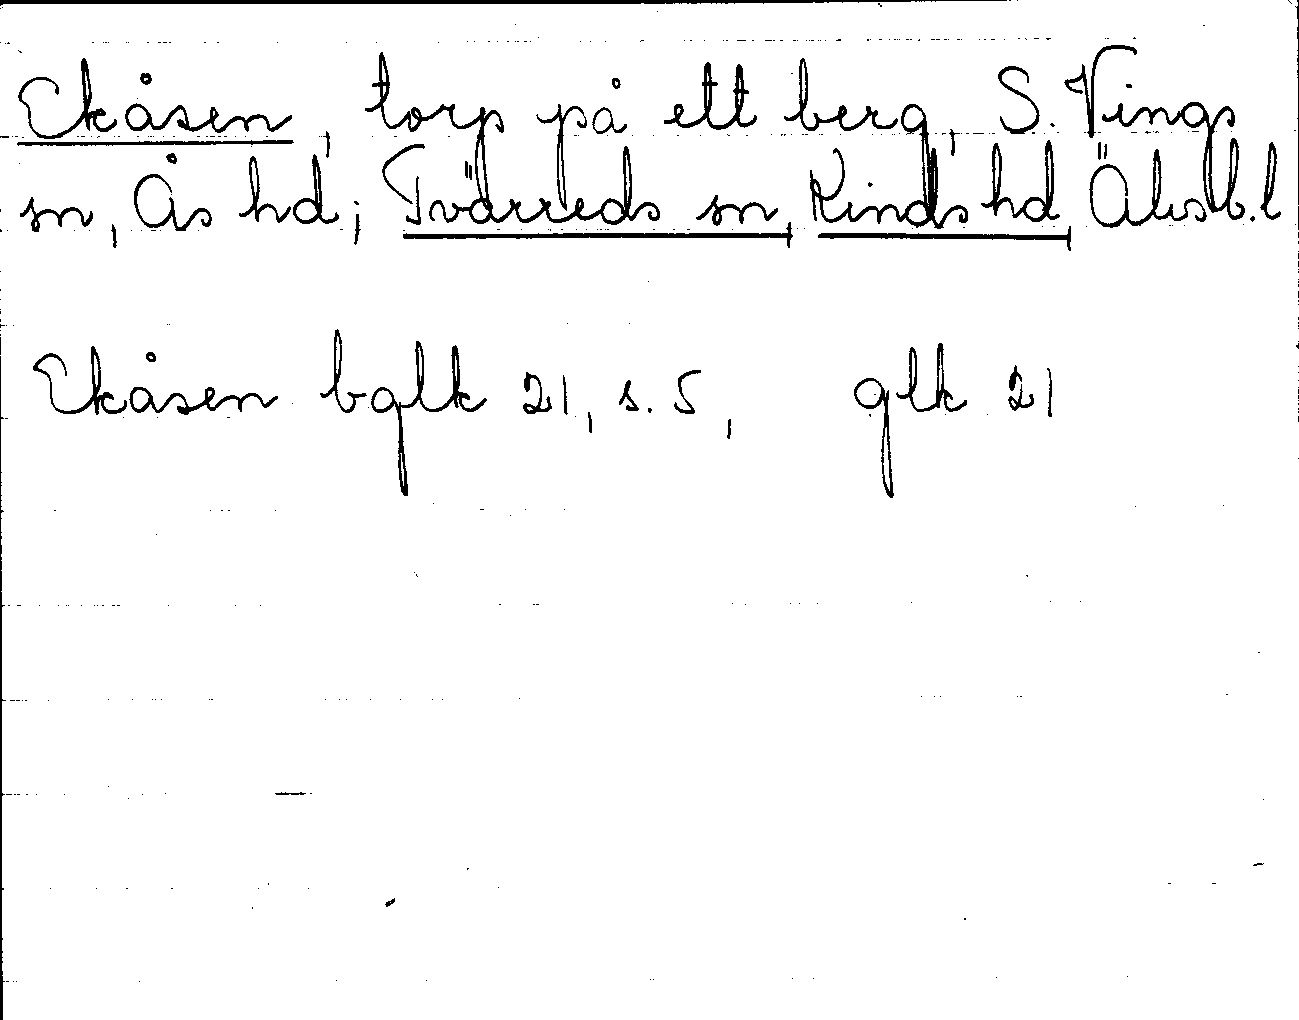 Ekåsen, torp på ett berg, S. Vings
sn, Ås hd; Tvärreds sn, Kinds hd, Älvsb. l
Ekåsen bglk 21, s. 5, glk 21